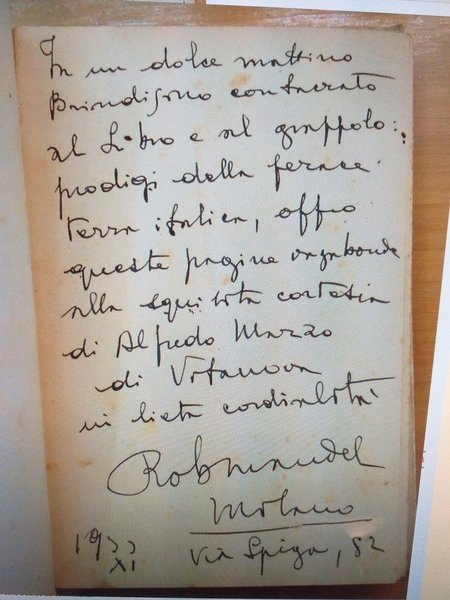 In un dolce mattino
Brindisino consacrato
al Libro e al grappolo:
prodigi della ferace
terra italica, offro
queste pagine vagabonde
alla squisita cortesia
di Alfredo Marzo
di Vitanova
in lieta cordialità
Robmandel
Milano
1933
XI
Via Spiga, 52